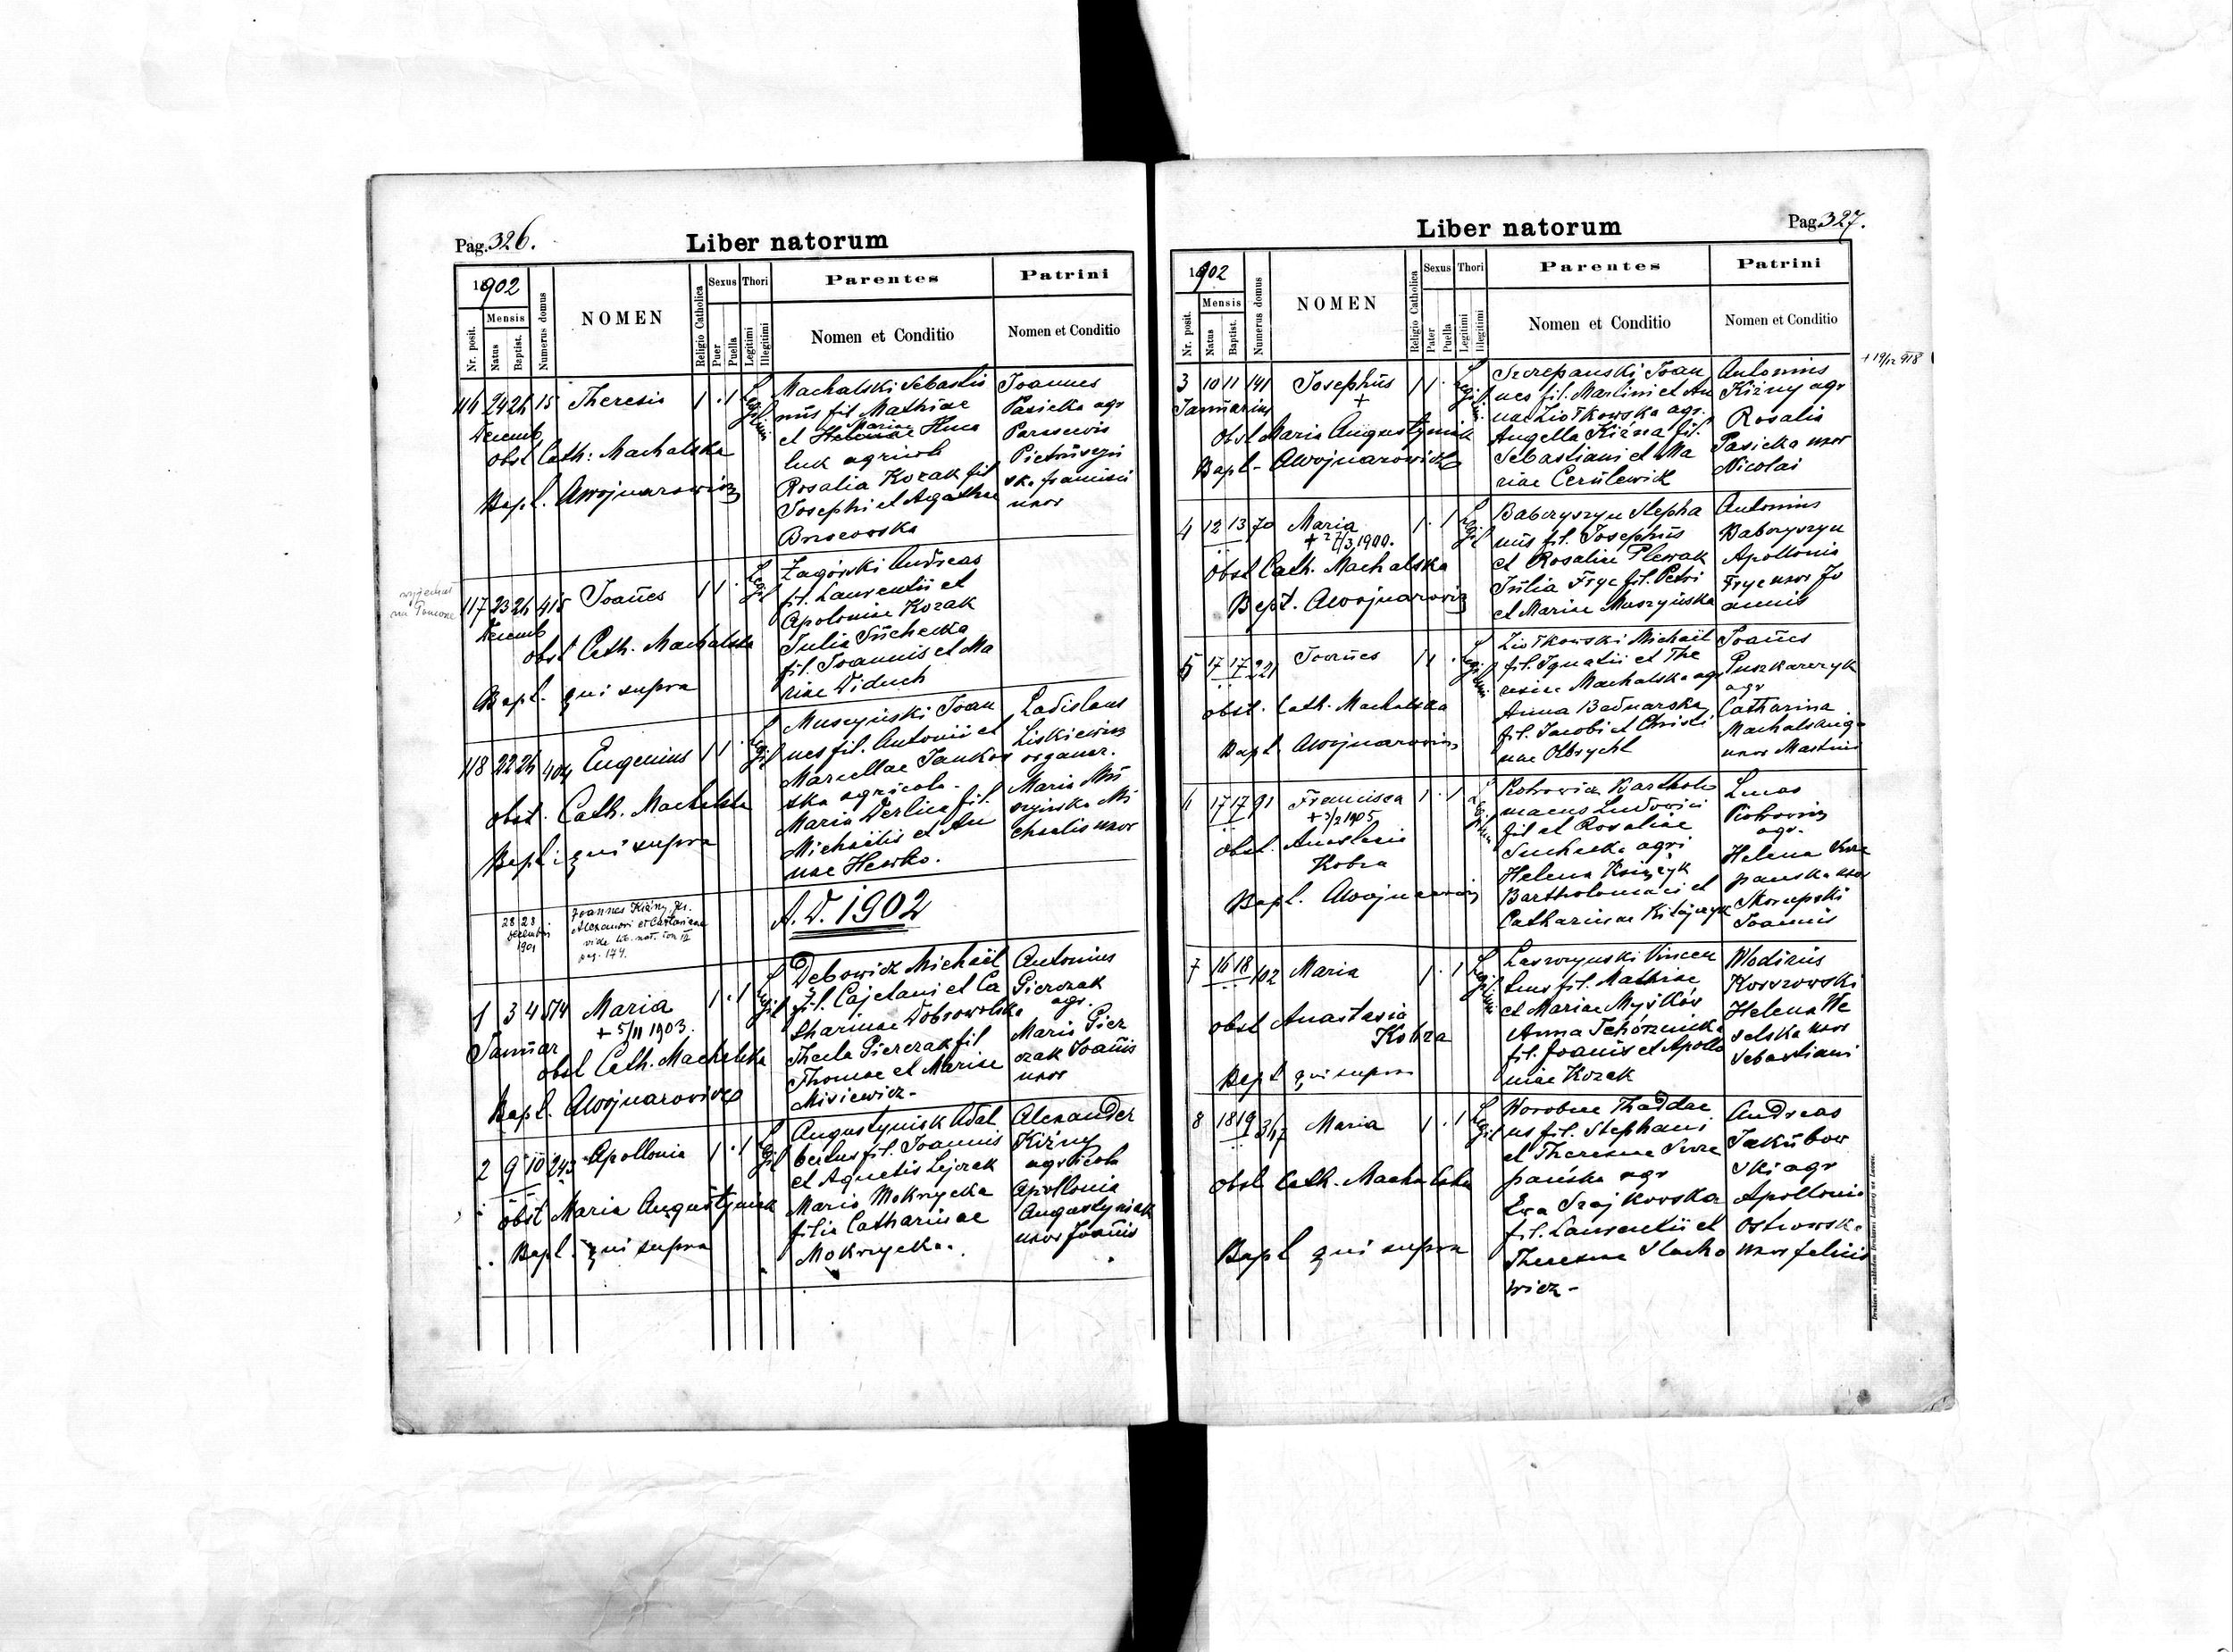 Pag. 326.
Liber natorum
1902
Nr. posit.
Mensis
Natus
Baptist.
Numerus domus
NOMEN
Religio Catholica
Sexus
Puer
Puella
Thori
Legitimi
Illegitimi
Parentes
Nomen et Conditio
Patrini
Nomen et Conditio
116 24 26 15 Theresia 1 . 1
Decemb
obst Cath: Machalska
Bapt. AWojnarowicz
Machalski Sebastia
nus fil Mathiae
Maria
et Helenae
luk agricola
Rosalia Kozak fil
Josephi et Agathae
Joannes
Pasieka agr
Parascevia
Pietruszyń
ska Francisci
uxor
wyjechał
117 23 26 415 Joañes 1 1 .
Decemb
obst Cath. Machalska
Bapt. qui supra
Zagórski Andreas
fil. Laurentii et
Apoloniae Kozak
Julia Suchecka
fil. Joannis et Ma
riae Diduch
118 22 26 404 Eugenius 1 1 .
obst. Cath. Machalska
Bapt: qui supra
Muszyński Joan
nes fil. Antonii et
Marcellae Jankow
ska agricola.
Maria Derlica fil.
Michaëlis et An
nae Hewko.
Ladislaus
Liskiewicz
organar.
Maria Mu
szyńska Mi
chaelis uxor
28 28
decembri
1901
Joannes Kiżny fil.
Alexandri et Catharinae
vide lib. nat. tom IV
pag. 174.
A.D. 1902
1 3 4 514 Maria 1 . 1
+ 5/11 1903.
Januar
obst Cath. Machalska
Bapt. AWojnarowicz
Debowicz Michaël
fil. Cajetani et Ca
tharinae Dobrowolska
Thecla Pierczak fil
Thomae et Mariae
Misiewicz-
Antonius
Pierczak
agr.
Maria Pier
czak Joañis
uxor
2 9 10 243 Apollonia 1 . 1
obst Maria Augustyniak
Bapt. qui supra
Augustyniak Adal
bertus fil. Joannis
et Agnetis Lejczak
Maria Mokrzycka
filia Catharinae
Mokrzycka.
Alexander
Kiżny
agricola
Apollonia
Augustyniak
uxor Joañis
Pag. 327.
Liber natorum
1902
Nr. posit.
Mensis
Natus
Baptist.
Numerus domus
NOMEN
Religio Catholica
Sexus
Puer
Puella
Thori
Legitimi
Illegitimi
Parentes
Nomen et Conditio
Patrini
Nomen et Conditio
3 10 11 141 Josephus 1 1 .
+
Januarius
Obst Maria Augustyniak
Bapt - AWojnarowicz
Szczepanski Joan
nes fil. Martini et An
nae Ziołkowska agr.
Angella Kiźna fil.
Sebastiani et Ma
riae Cerulewicz
Antonius
Kiżny agr
Rosalia
Pasieka uxor
Nicolai
+ 19/12 918
4 12 13 70 Maria 1 . 1
Obst Cath. Machalska
Bapt. AWojnarowicz
Babczyszyn Stepha
nus fil. Josephus
et Rosaliae Plewak
Julia Fryc fil. Petri
et Mariae Muszyńska
Antonius
Babczyszyn
Apollonia
Fryc uxor Jo
annis
5 17 17 221 Joañes 1 1 .
obst. Cath. Machalska
Bapt AWojnarowicz
Ziołkowski Michaël
fil. Ignatii et The
resiae Machalska agr
Anna Badnarska
fil. Jacobi et Christi
nae Olbrycht
Joañes
Puszkarczyk
agr
Catharina
uxor Martini
6 17 17 91 Francisca 1 . 1
+ 3/2 1905
Obst. Anastasia
Kobza
Bapt. AWojnarowicz
maeus Ludovici
fil et Rosaliae
Suchecka agri
Helena Księżyk
Bartholomaei et
Lucas
Piotrowicz
agr.
Helena
panska uxor
Joannis
7 16 18 102 Maria 1 . 1
obst Anastasia
Kobza
Bapt qui supra
tius fil. Mathiae
et Mariae Myśków
Anna Tchórznicka
fil. Joanis et Apollo
niae Kozak
Helena We
selska uxor
Sebastiani
8 18 19 317 Maria 1 . 1
Obst Cath. Machalska
Bapt qui supra
Worobec Thaddae
us fil. Stephani
et Theresiae Szcze
pańska agr
Eva Szajkowska
fil. Laurentii et
Theresiae Stacho
wicz-
Andreas
Jakubow
ski agr
Apollonia
Ostrowska
uxor Felicis